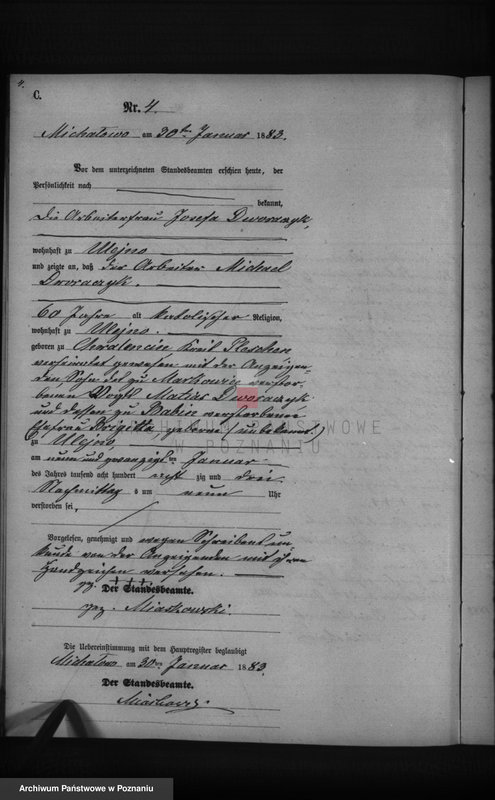 4.
C.
Nr. 4.
Michałowo am 30ten Januar 1883.
Vor dem unterzeichneten Standesbeamten erschien heute, der
Persönlichkeit nach
bekannt,
die Arbeiterfrau Josefa Dworaczyk,
wohnhaft zu Ulejno
und zeigte an, daß der Arbeiter Michael
Dworaczyk.
60 Jahre alt katolischer Religion,
wohnhaft zu Ulejno.
geboren zu Chwalencin Kreis Pleschen
verheiratet gewesen mit der Anzeigen-
den Sohn des zu Markowic verstor-
benen Voigt Matias Dworaczyk
und dessen zu Babin verstorbene
Ehefrau Brigitta geborene (unbekannt)
ARCHIWUM PAŃSTWOWE
W POZNANIU
zu Ulejno
am neun und zwanzigsten Januar
des Jahres tausend acht hundert acht zig und drei
Nachmittag s um neun Uhr
verstorben sei,
Vorgelesen, genehmigt und wegen Schreibens un-
kunde von der Anzeigenden mit ihren
Handzeichen versehen.
gez. + + +
Der Standesbeamte.
gez. Miaskowski.
Die Uebereinstimmung mit dem Hauptregister beglaubigt
Michałowo am 30ten Januar 1883.
Der Standesbeamte.
Miaskowski.
Archiwum Państwowe w Poznaniu